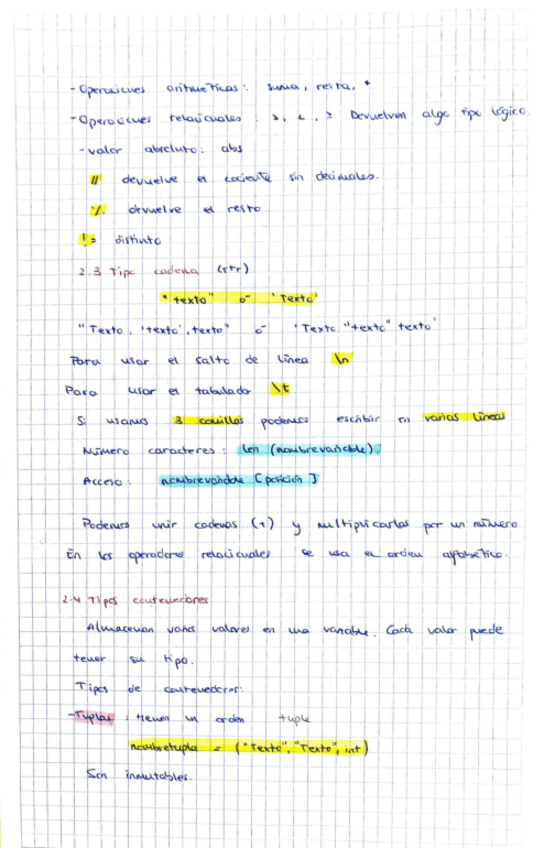 - Operaciones aritméticas: suma, resta, *
- Operaciones relacionales: >, <, > Devuelven algo tipo lógico.
- valor absoluto: abs
// devuelve el cociente sin decimales.
% devuelve el resto
!= distinto
2.3 Tipo cadena (str)
"texto" ó 'Texto'
"Texto, 'texto', texto" ó 'Texto "texto" texto'
Para usar el salto de línea \n
Para usar el tabulador \t
Si usamos 3 comillas podemos escribir en varias líneas
Número caracteres: len (nombrevariable)
Acceso: nombrevariable [posición]
Podemos unir cadenas (+) y multiplicarlas por un número
En los operadores relacionales se usa el orden alfabético.
2.4 Tipos contenedores
Almacenan varios valores en una variable. Cada valor puede
tener su tipo.
Tipos de contenedores:
- Tuplas: tienen un orden tuple
nombretupla = ("Texto", "Texto", int)
Son inmutables.